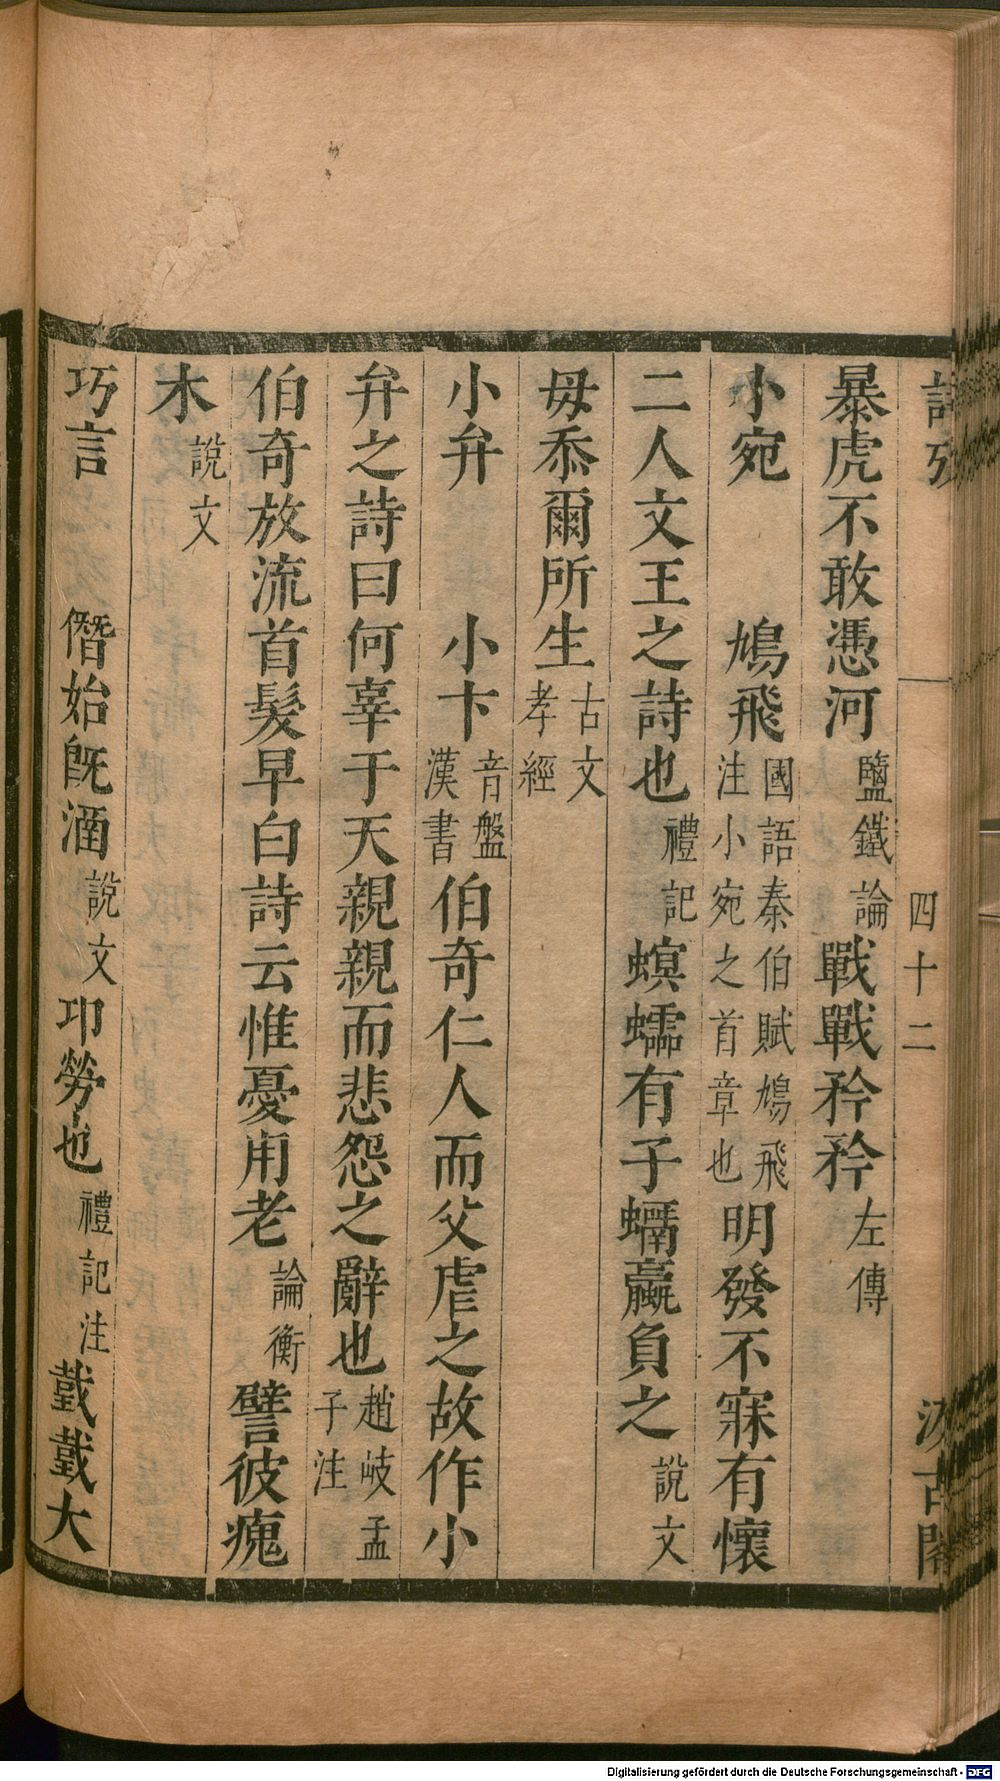 詩攷 四十二 汲古閣
暴虎不敢憑河鹽鐵論戰戰矜矜左傳
小宛 鳩飛國語秦伯賦鳩飛注小宛之首章也明發不寐有懷
二人文王之詩也禮記螟蠕有子蠣蠃負之說文
毋忝爾所生古文孝經
小弁 小卞音盤漢書伯奇仁人而父虐之故作小
弁之詩曰何辜于天親親而悲怨之辭也趙岐孟子注
伯奇放流首髮早白詩云惟憂用老論衡譬彼瘣
木說文
巧言 僭始旣涵說文卭勞也禮記注戴戴大
Digitalisierung gefördert durch die Deutsche Forschungsgemeinschaft - DFG